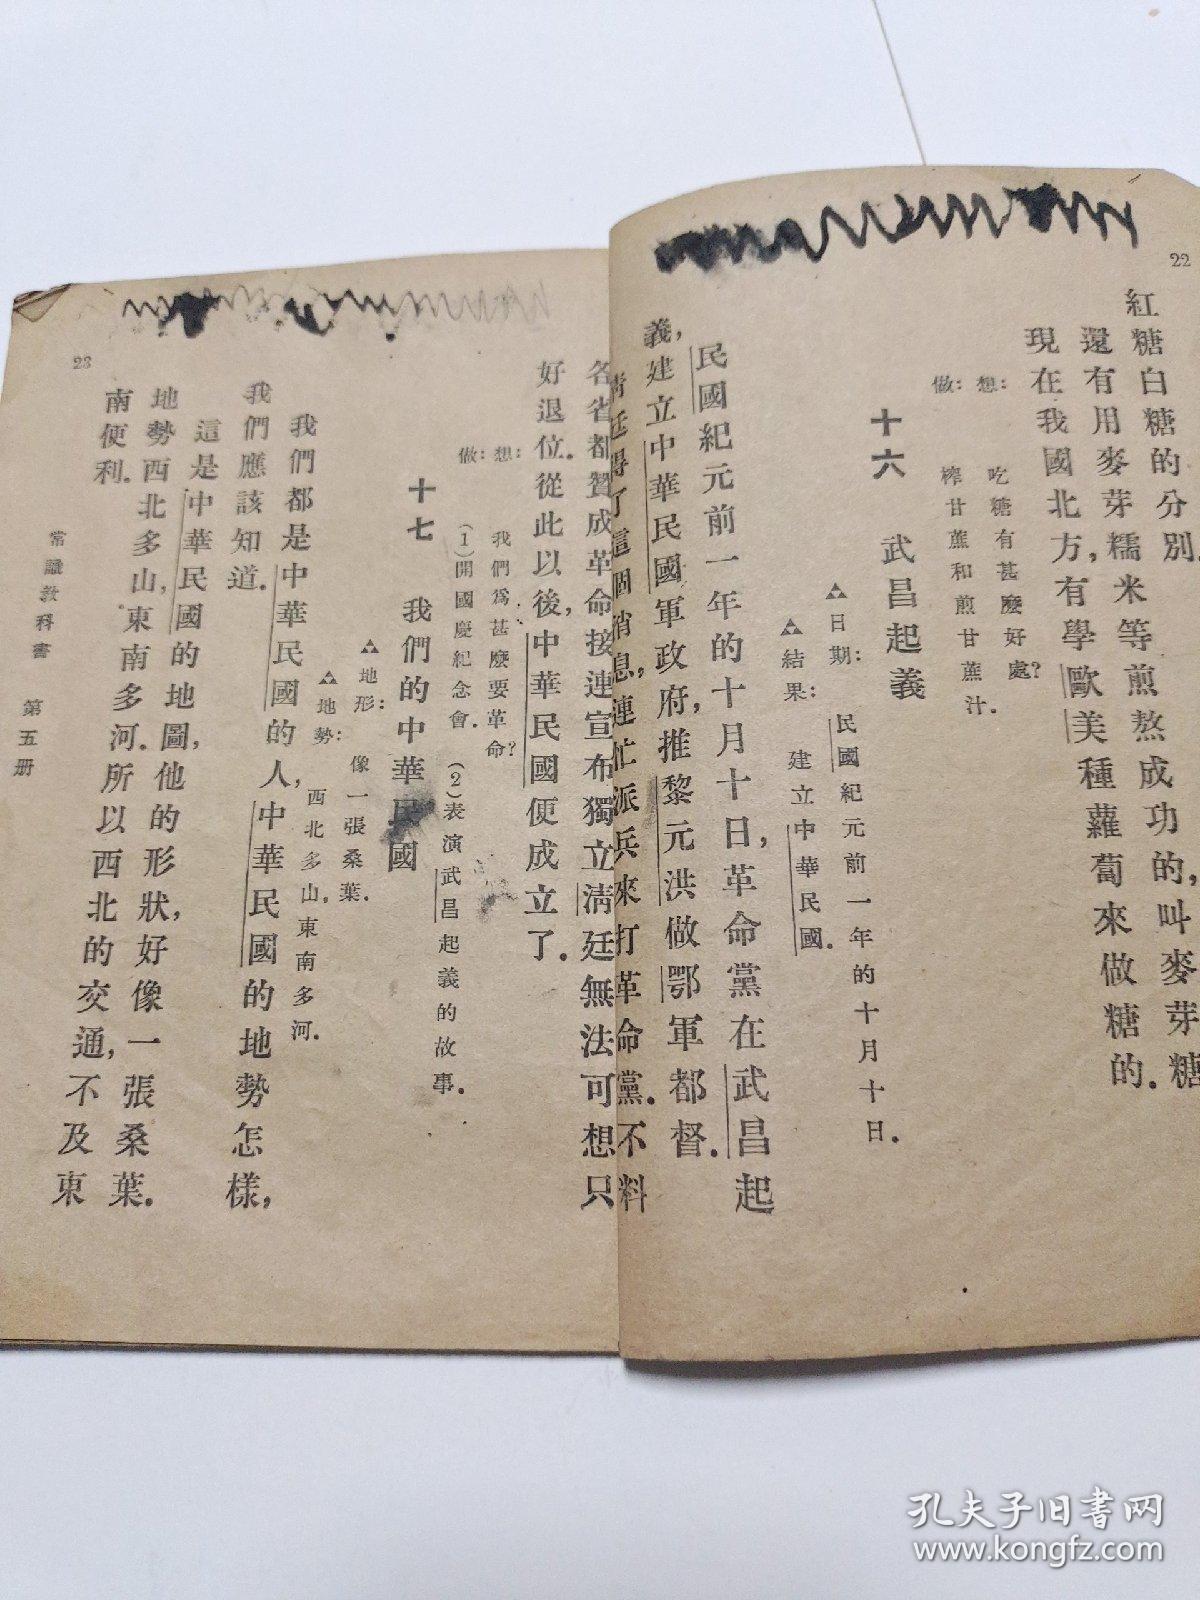 22
紅糖白糖的分別.
還有用麥芽,糯米等煎熬成功的,叫麥芽糖
現在我國北方,有學歐美種蘿蔔來做糖的.
想: 吃糖有甚麼好處?
做: 榨甘蔗和煎甘蔗汁.
十六 武昌起義
△日期: 民國紀元前一年的十月十日.
△結果: 建立中華民國.
民國紀元前一年的十月十日,革命黨在武昌起
義,建立中華民國軍政府,推黎元洪做鄂軍都督.
清廷得了這個消息,連忙派兵來打革命黨.不料
各省都贊成革命接連宣布獨立淸廷無法可想只
好退位.從此以後,中華民國便成立了.
想: 我們爲甚麼要革命?
做: (1)開國慶紀念會. (2)表演武昌起義的故事.
十七 我們的中華民國
△地形: 像一張桑葉.
△地勢: 西北多山,東南多河.
我們都是中華民國的人,中華民國的地勢怎樣,
我們應該知道.
這是中華民國的地圖,他的形狀,好像一張桑葉.
地勢西北多山,東南多河.所以西北的交通,不及東
南便利.
常識教科書 第五册
23
孔夫子旧书网
www.kongfz.com